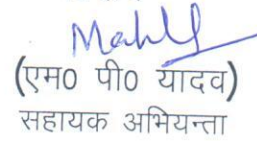 (एम0 पी0 यादव)
सहायक अभियन्ता